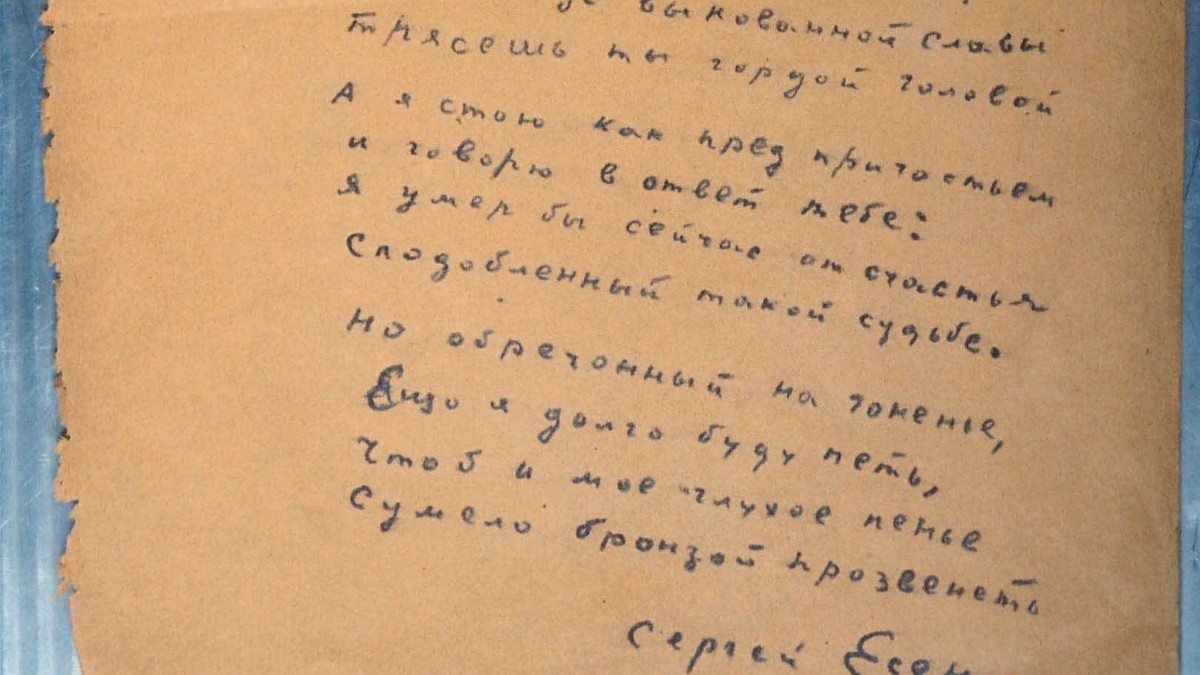 выкованной славы
трясешь ты гордой головой
А я стою как пред причастьем
и говорю в ответ тебе:
я умер бы сейчас от счастья
Сподобленный такой судьбе.
Но обречонный на гоненье,
Ещо я долго буду петь,
Чтоб и мое глухое пенье
Сумело бронзой прозвенеть
Сергей Есен